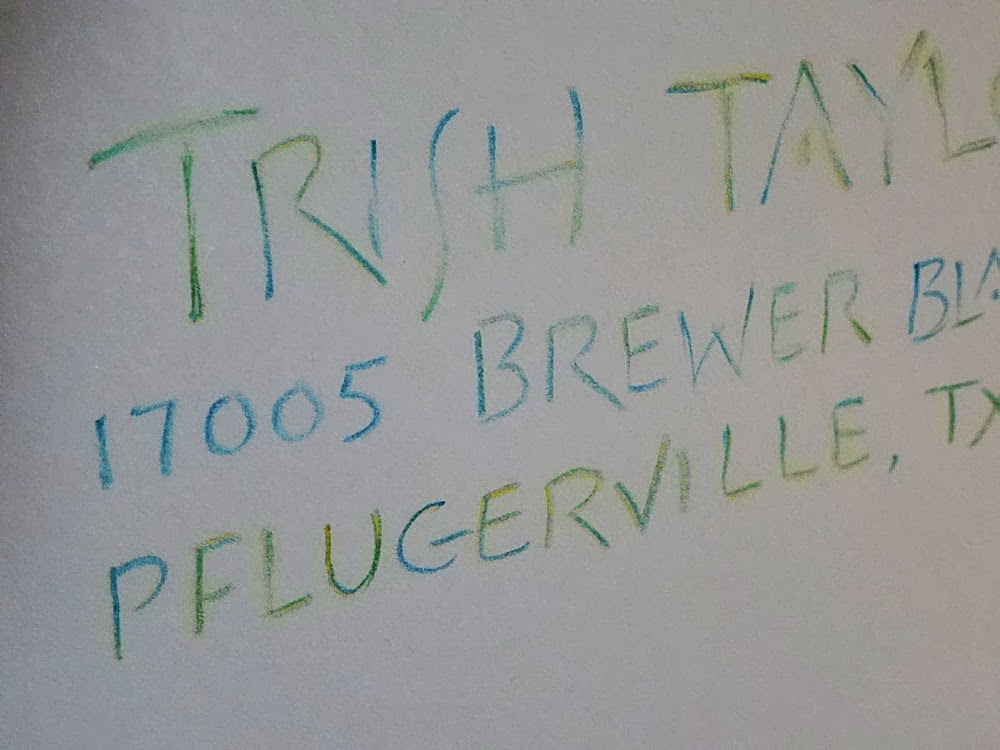 TRISH TAYLO
17005 BREWER BLA
PFLUGERVILLE, TX